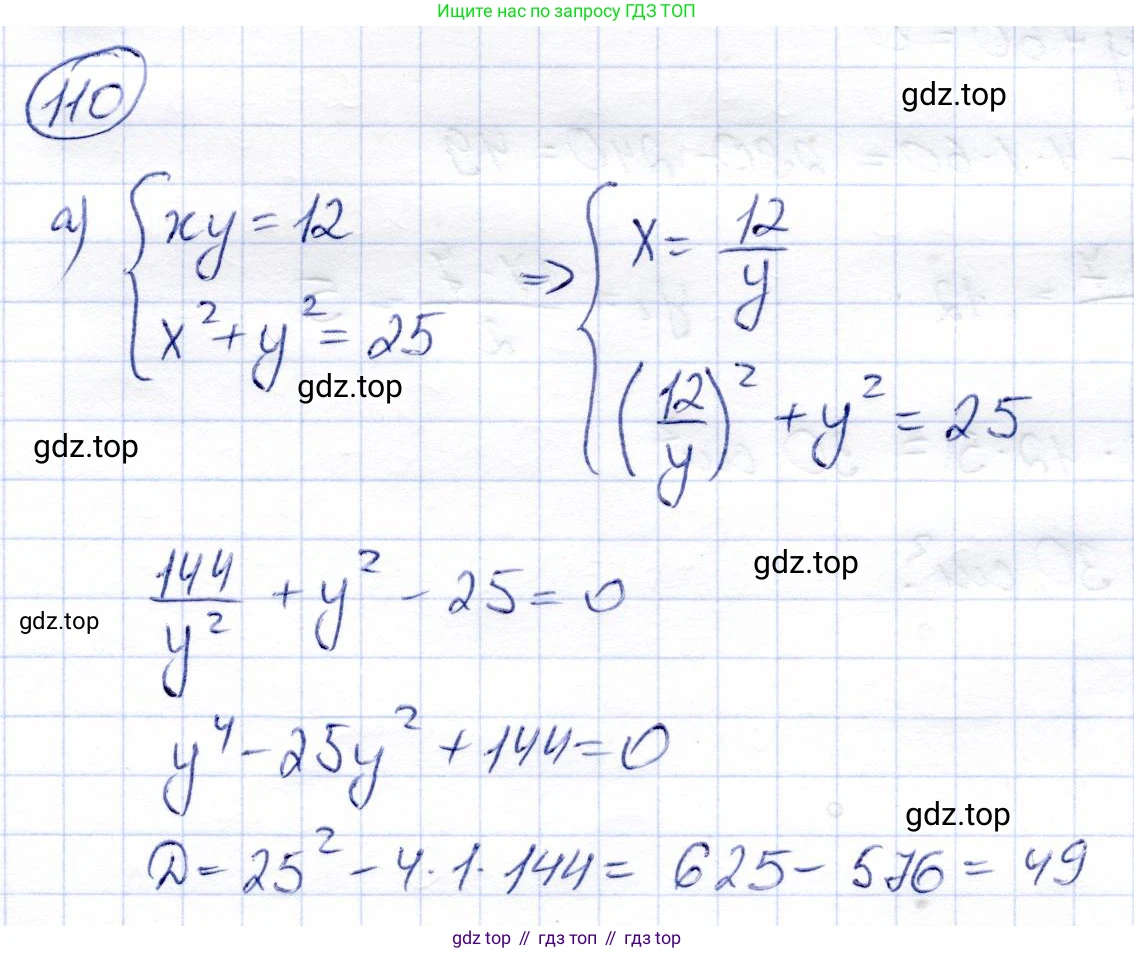 Ищите нас по запросу ГДЗ ТОП
110
gdz.top
а) { xy = 12
x² + y² = 25
=> { x = 12/y
(12/y)² + y² = 25
gdz.top
gdz.top
144/y² + y² - 25 = 0
gdz.top
gdz.top
y⁴ - 25y² + 144 = 0
gdz.top
D = 25² - 4·1·144 = 625 - 576 = 49
gdz top // гдз топ // гдз top